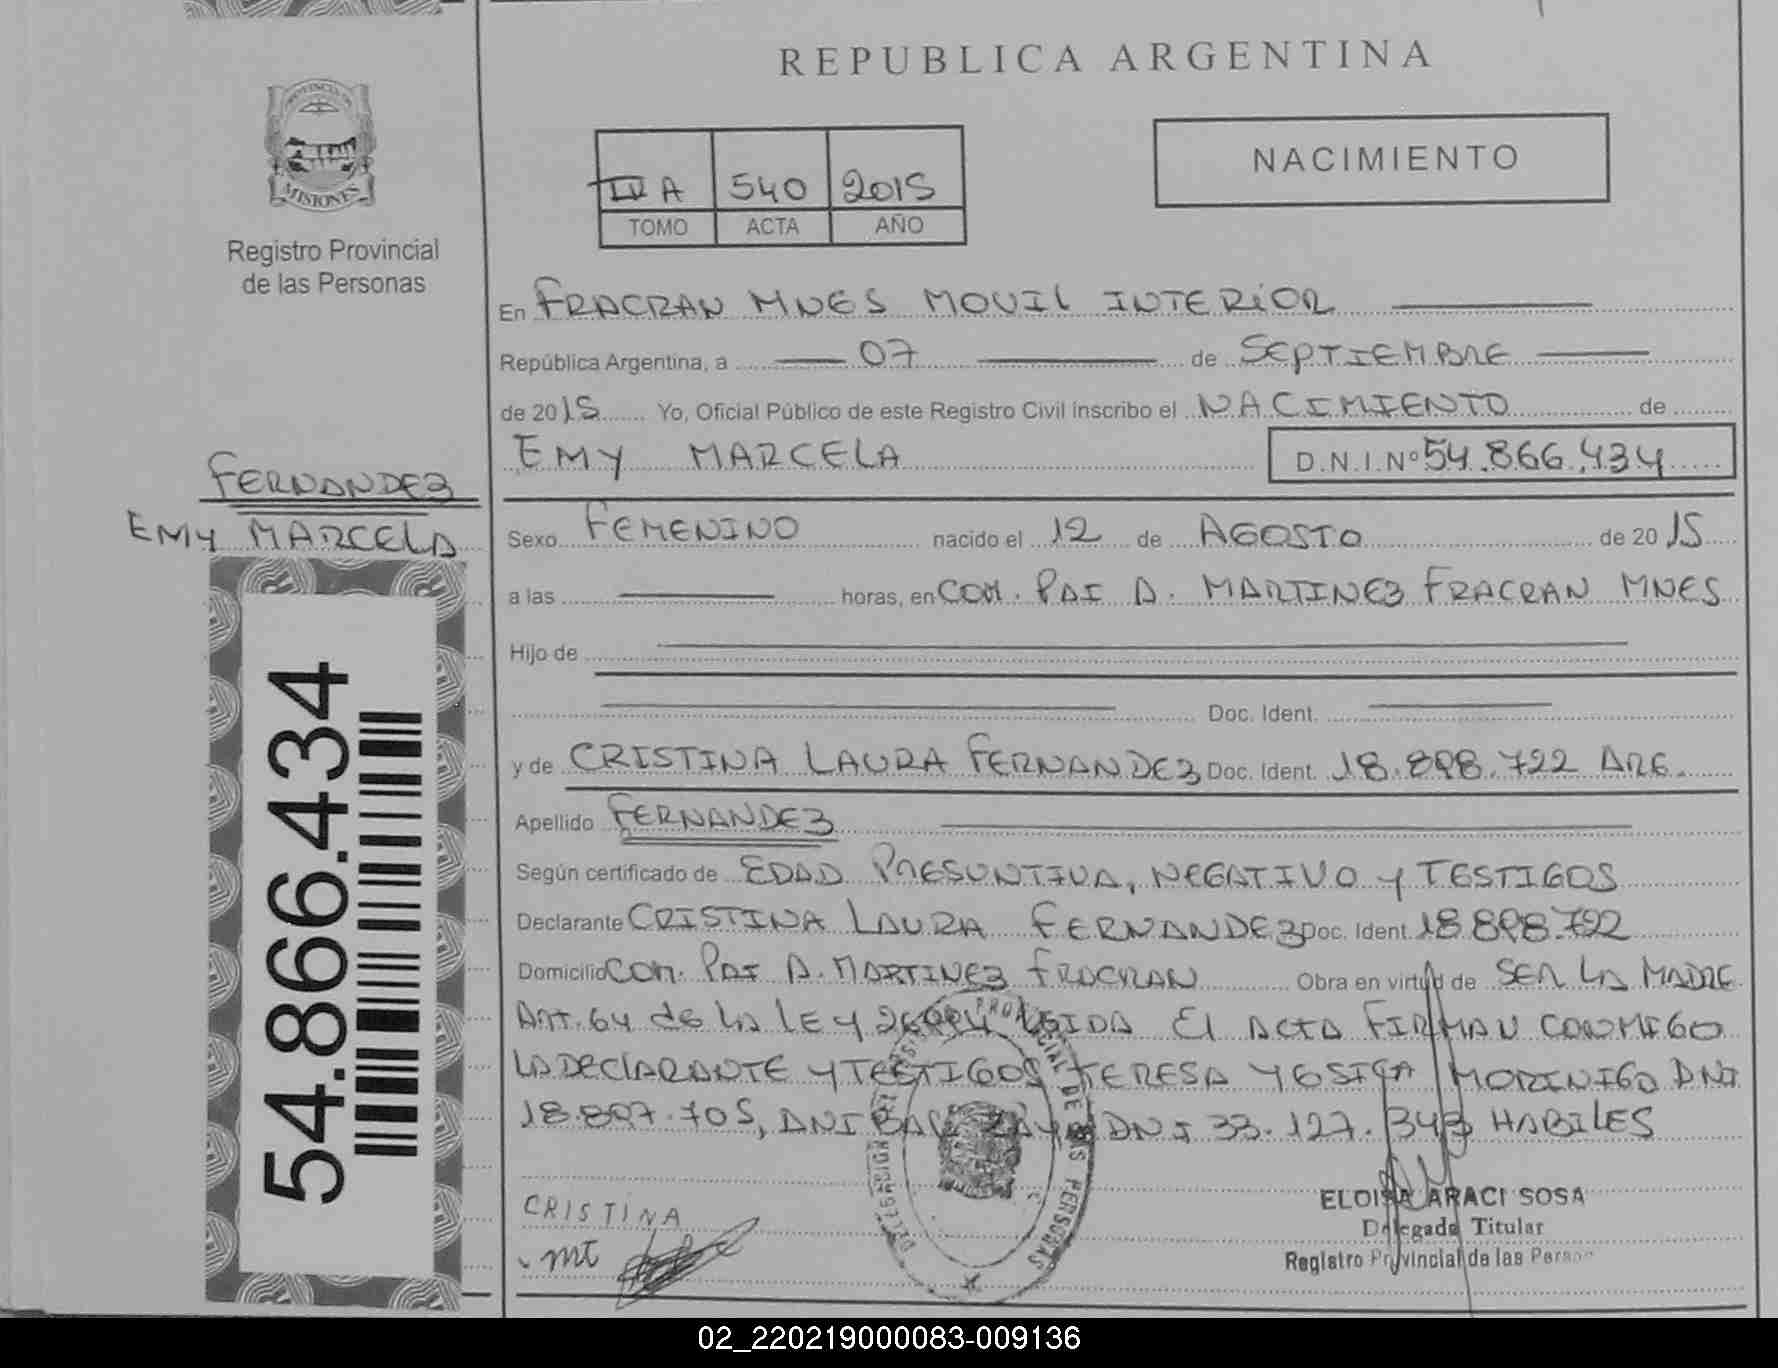 REPUBLICA ARGENTINA
PROVINCIA DE
MISIONES
Registro Provincial
de las Personas
A 540 2015
TOMO ACTA AÑO
NACIMIENTO
En FRACRAN MNES MOVIL INTERIOR
República Argentina, a 07 de SEPTIEMBRE
de 2015 Yo, Oficial Público de este Registro Civil inscribo el NACIMIENTO de
EMY MARCELA D.N.I.Nº 54.866.434
FERNANDEZ
EMY MARCELA
Sexo FEMENINO nacido el 12 de AGOSTO de 2015
a las horas, en COM. PAI A. MARTINEZ FRACRAN MNES
Hijo de
Doc. Ident.
y de CRISTINA LAURA FERNANDEZ Doc. Ident. 18.898.722 ARG.
Apellido FERNANDEZ
Según certificado de EDAD PRESUNTIVA, NEGATIVO Y TESTIGOS
Declarante CRISTINA LAURA FERNANDEZ Doc. Ident. 18.898.722
Domicilio COM. PAI A. MARTINEZ FRACRAN Obra en virtud de SER LA MADRE
ART. 64 de LA LEY LEIDA El ACTA FIRMAN CONMIGO
LA DEClARANTE Y TESTIGOS TERESA YESICA MORINIGO DNI
18.897.705, DNI 33.127.343 HABILES
54.866.434
CRISTINA
mt
PROVINCIAL DE LAS PERSONAS
DELEGACION
ELOISA ARACI SOSA
Delegada Titular
Registro Provincial de las Personas
02_220219000083-009136